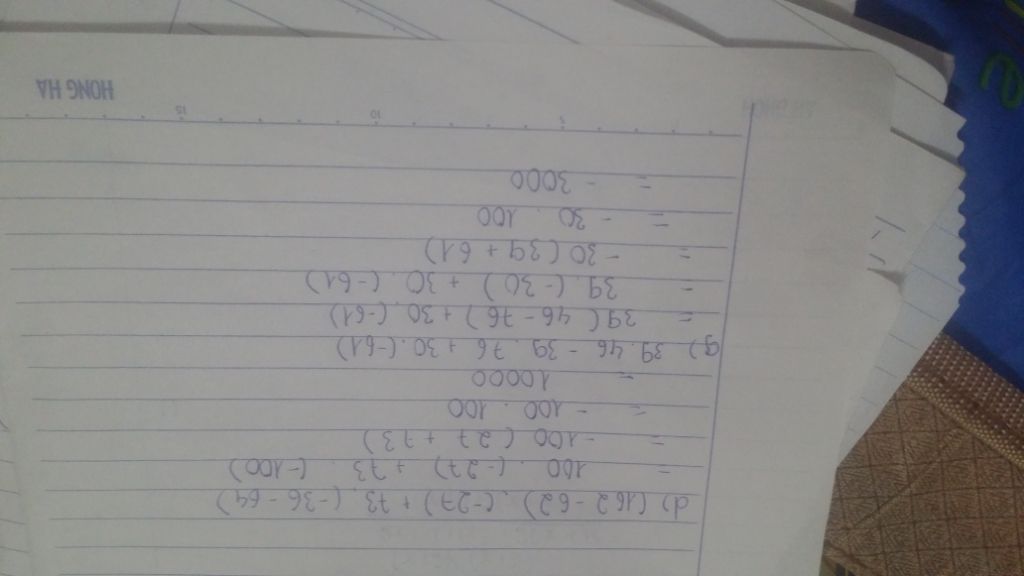 d) (162 - 62) . (-27) + 73 . (-36 - 64)
= 100 . (-27) + 73 . (-100)
= -100 (27 + 73)
= -100 . 100
= 10000
g) 39 . 46 - 39 . 76 + 30 . (-61)
= 39 (46 - 76) + 30 . (-61)
= 39 . (-30) + 30 . (-61)
= -30 (39 + 61)
= -30 . 100
= -3000
5 10 15
HONG HA